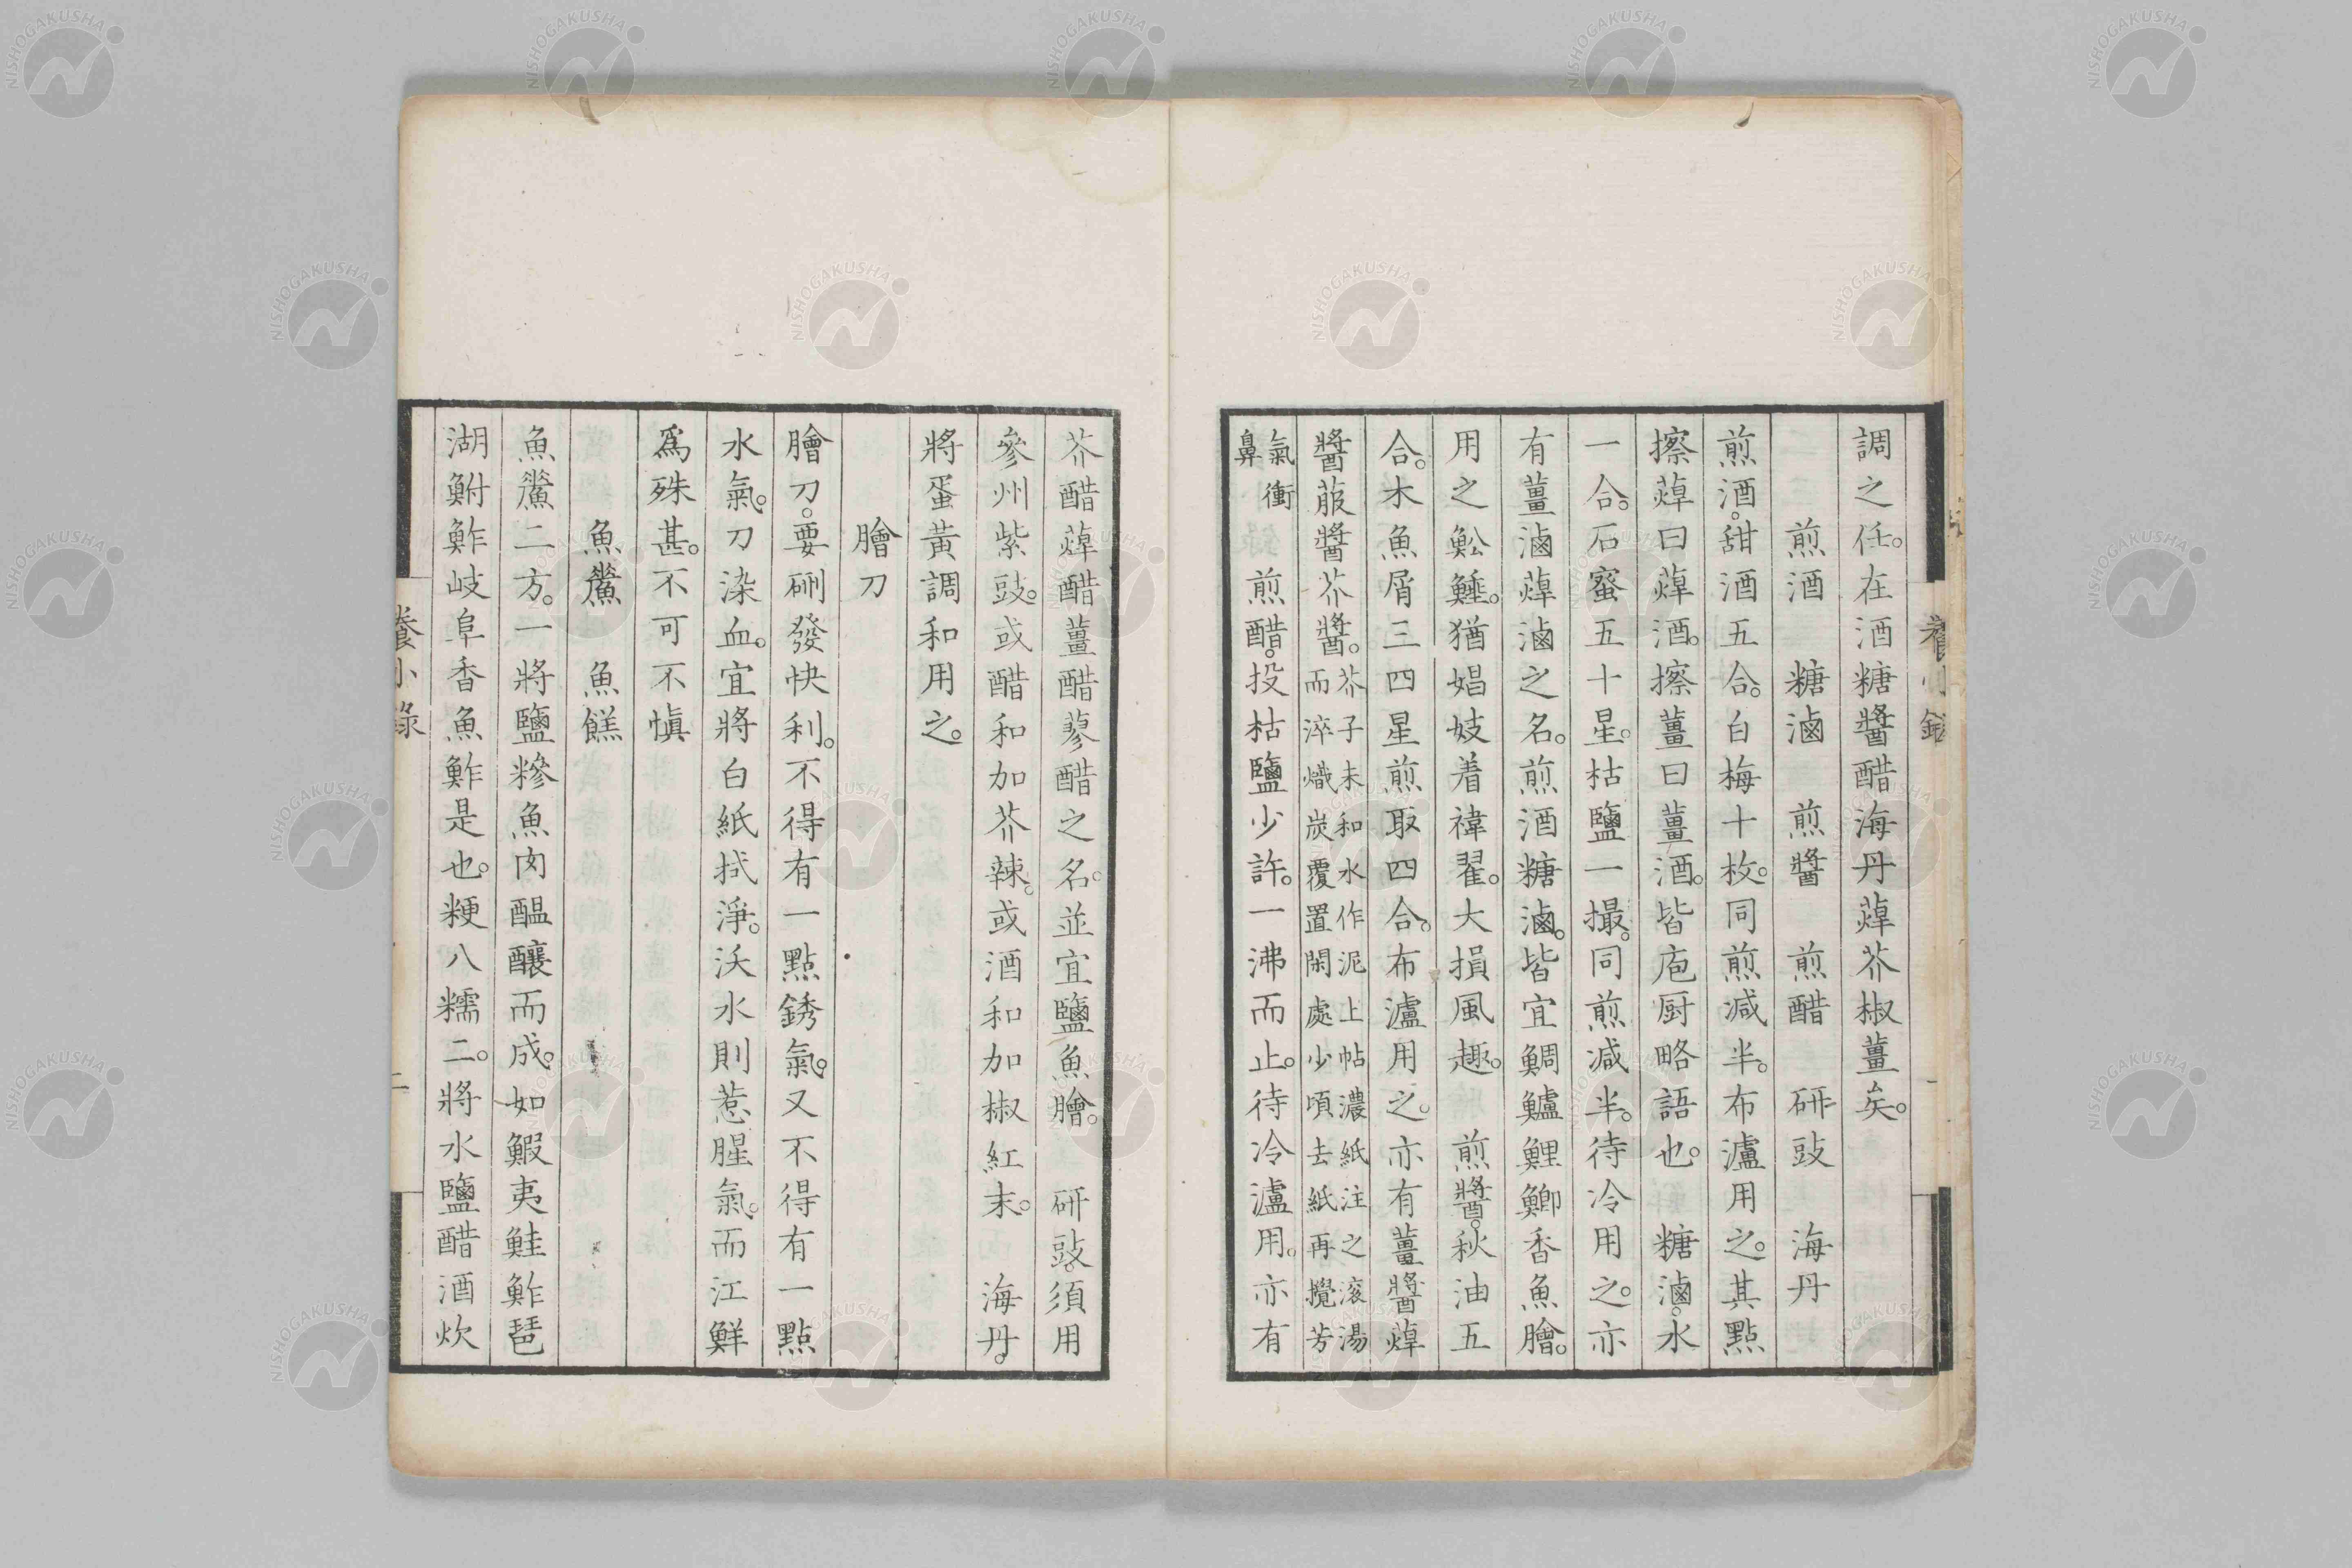 調之任。在酒糖醬醋海丹蔊芥椒薑矣。
煎酒　糖滷　煎醬　煎醋　研豉　海丹
煎酒。甜酒五合。白梅十枚。同煎減半。布瀘用之。其點
擦蔊曰蔊酒。擦薑曰薑酒。皆庖厨略語也。糖滷。水
一合。石蜜五十星。枯鹽一撮。同煎減半。待冷用之。亦
有薑滷蔊滷之名。煎酒糖滷。皆宜鯛鱸鯉鯽香魚膾。
用之魩。猶娼妓着褘翟。大損風趣。煎醬。秋油五
合。木魚屑三四星煎取四合。布瀘用之。亦有薑醬蔊
醬菔醬芥醬。芥子末和水作泥上帖濃紙注之滚湯
而淬熾炭覆置閑處少頃去紙再攪芳
氣衝鼻煎醋。投枯鹽少許。一沸而止。待冷瀘用。亦有
芥醋蔊醋薑醋蓼醋之名。並宜鹽魚膾。研豉。須用
參州紫豉。或醋和加芥辣。或酒和加椒紅末。海丹。
將蛋黃調和用之。
膾刀
膾刀。要硎發快利。不得有一點銹氣。又不得有一點
水氣。刀染血。宜將白紙拭淨。沃水則惹腥氣。而江鮮
爲殊甚。不可不愼
魚鮝　魚餻
魚鮝二方。一將鹽糝魚肉醖釀而成。如鰕夷鮭鮓琶
湖鮒鮓岐阜香魚鮓是也。粳八糯二。將水鹽醋酒炊
養小錄
二
養小錄